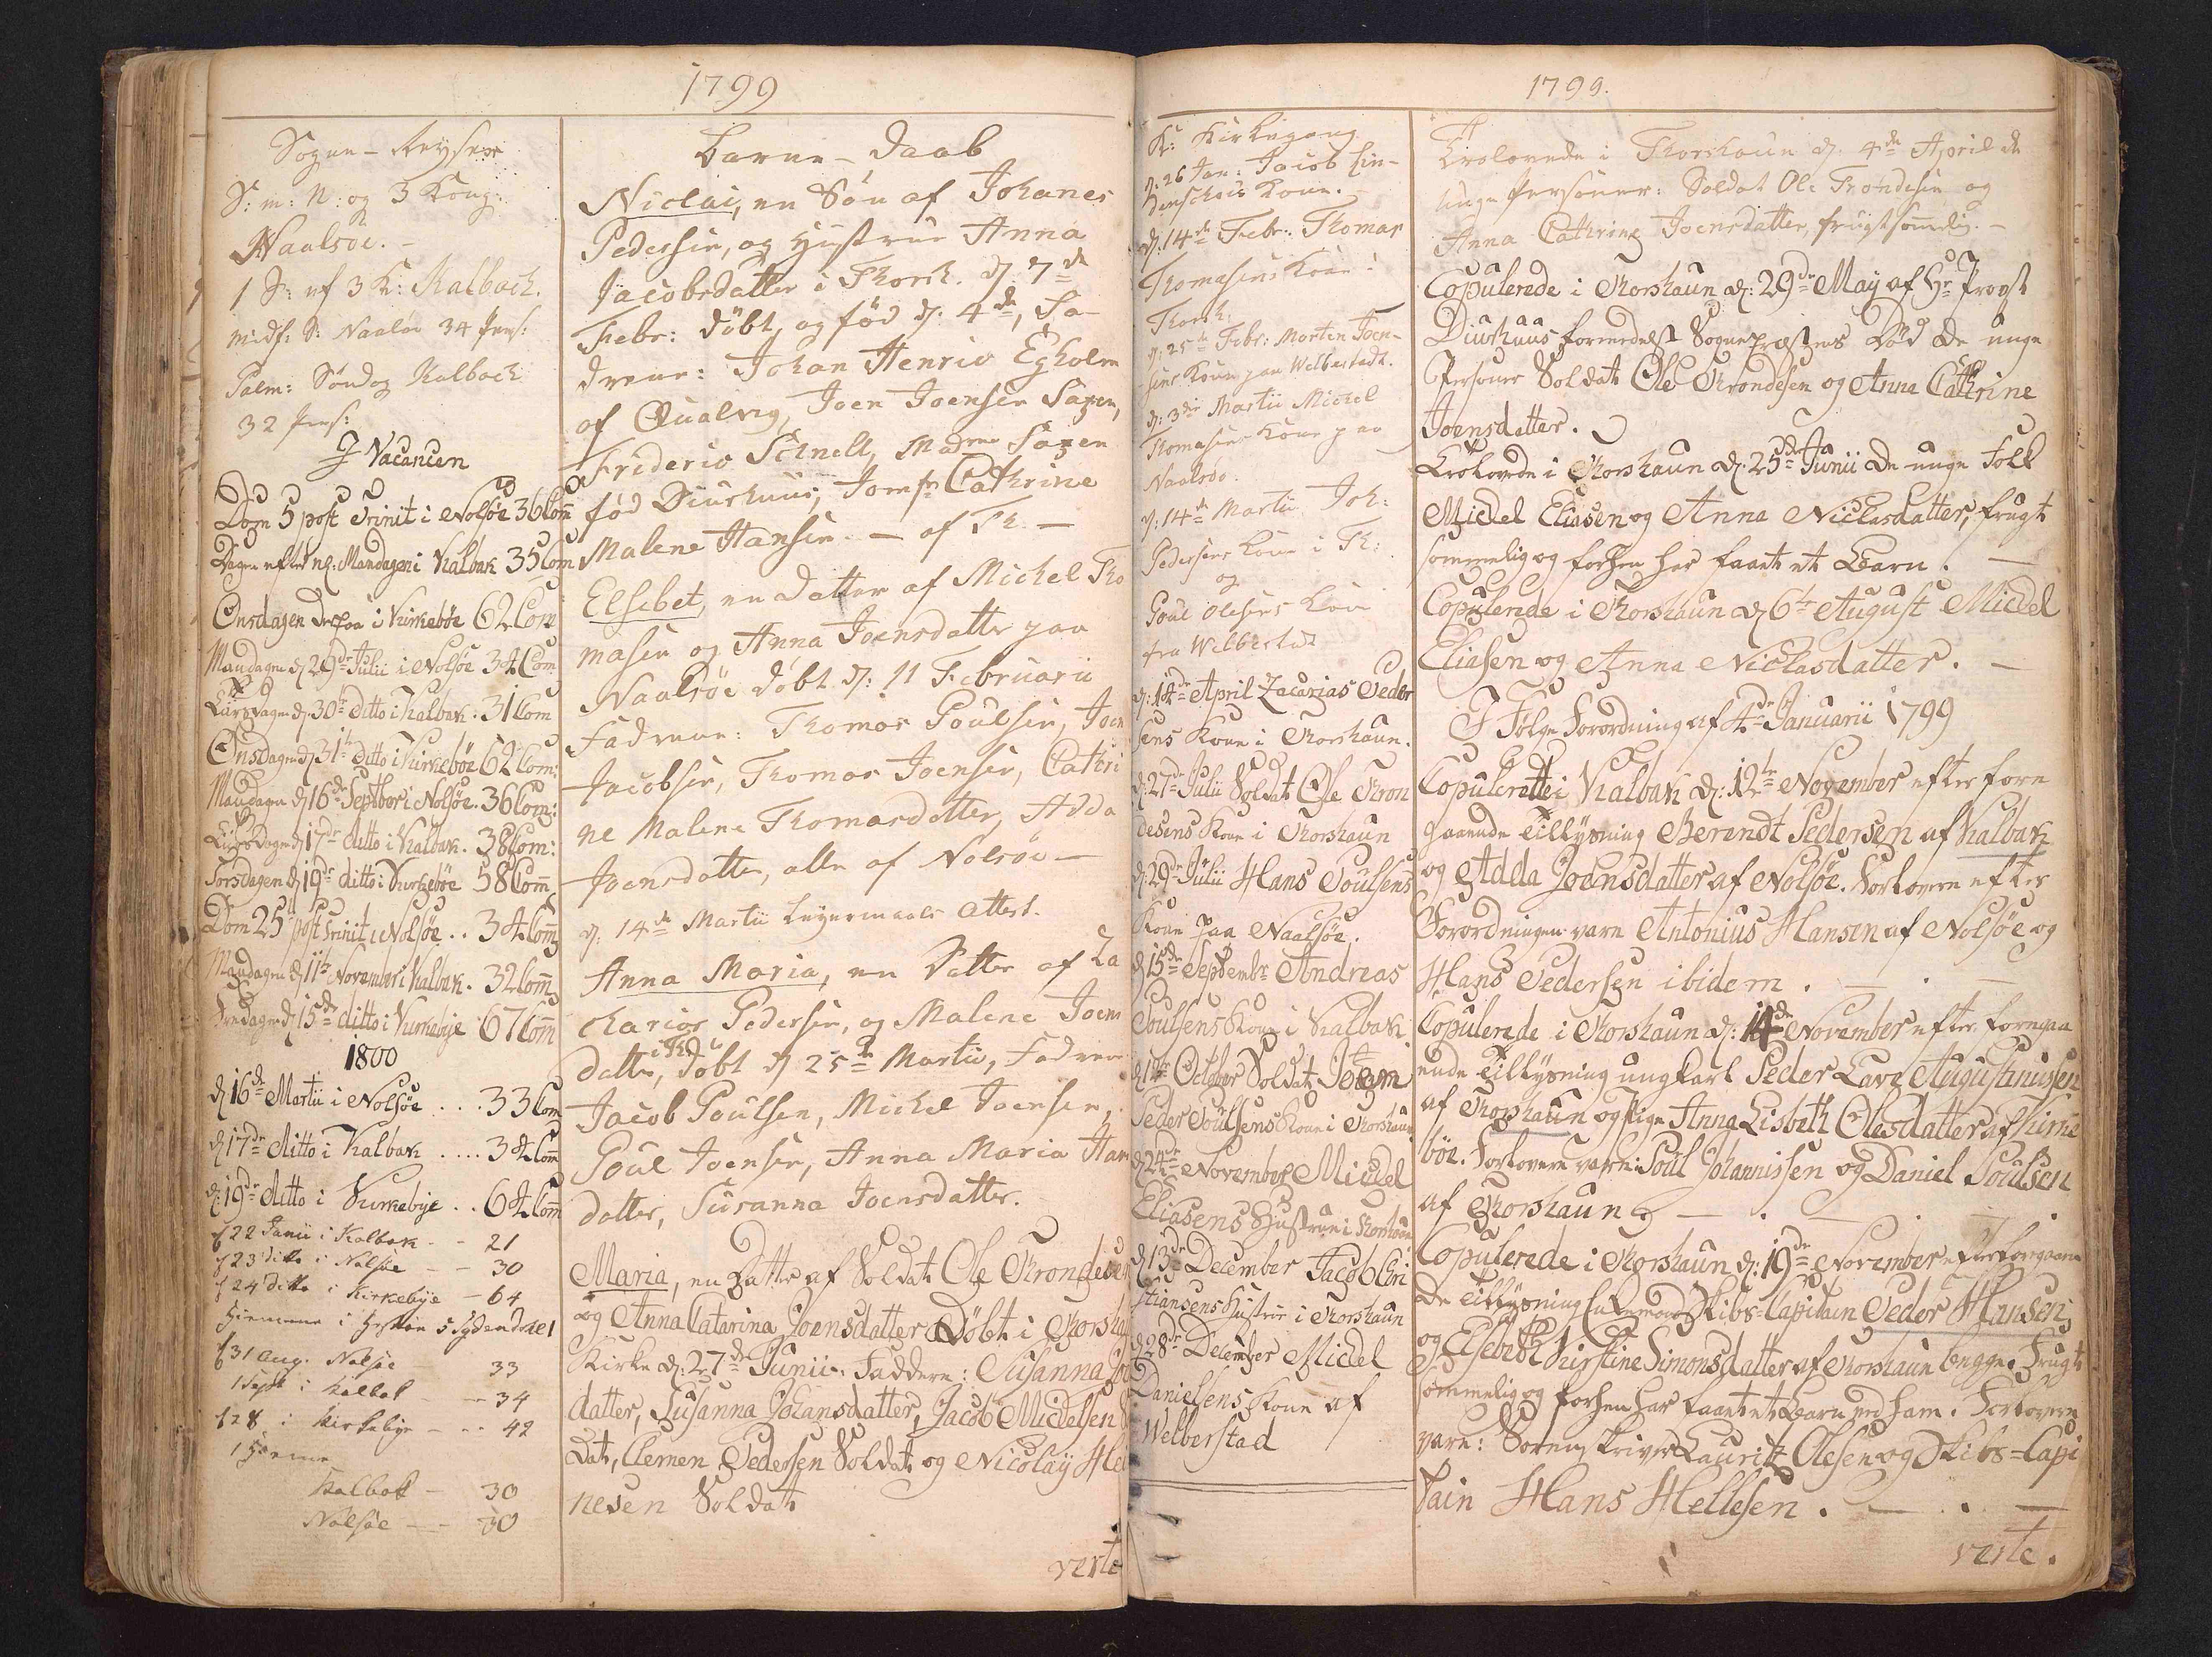 1799
Sogne-Reyser
S: m: N: og 3 Kong:
Naalsöe.
1 S: af 3 K: Kalbach.
midf: S: Naalsöe 34 Pers:
Palm: Söndag Kalbach
32 Pers:
I Vacancen
Dom 5 post Trinit i Nolsöe 36 Com
Dagen efter nl: Mandagen i Kalbak 35 Com
Onsdagen i Kirkeböe 62 Com
Mandagen d 29de Julii i Nolsöe 34 Com
d. 30te ditto i Kalbak. 31 Com
Onsdagen d 31te ditto i Kirkeböe 62 Com:
Mandagen d 16de Septbr i Nolsöe. 36 Com:
d 17de ditto i Kalbak. 38 Com:
Torsdagen d 19de ditto i Kirkeböe 58 Com
Dom 25 post Trinit i Nolsöe .. 34 Com
Mandagen d 11te November i Kalbak. 32 Com
Fredagen d 15de ditto i Kirkebye 67 Com
1800
d 16de Martii i Nolsöe ... 33 Com
d 17de ditto i Kalbak .... 34 Com
d: 19de ditto i Kirkebye .. 64 Com
d 22 Junii i Kalbak - - 21
d 23 ditto i Nolsöe - - 30
d 24 ditto i Kirkebye - 64
Hiemme i
d 31 Aug. Nolsöe 33
1 Sept i Kalbak - 34
d 28 i Kirkebye - - 42
1 Hiemme
Kalbak - 30
Nolsöe - - 30
Barne-Daab
Niclai, en Sön af Johanes
Pedersen, og Hustrue Anna
Jacobsdatter i Thorsh. d. 7de
Febr: döbt, og föd d. 4de, Fa-
drene: Johan Henric Egholm
af Qualvig, Joen Joensen Saxen,
Frideric Schnell, Madme Saxen
föd Diurhuus, Jomfr Cathrine
Malene Hansen - af Th. -
Elsebet, en datter af Michel Tho
masen og Anna Joensdatter paa
Naalsöe döbt d: 11 Februarii
Fadrene: Thomas Poulsen, Joen
Jacobsen, Thomas Joensen, Cathri
ne Malene Thomasdatter, Adda
Joensdatter, alle af Nolsöe -
d. 14de Martii Leyermaals Attest.
Anna Maria, en Datter af Za
charias Pedersen, og Malene Joens
datter, i Th. döbt d 25de Martii, Fadrene
Jacob Poulsen, Michel Joensen,
Poul Joensen, Anna Maria Han
datter, Susanna Joensdatter.
Maria, en Datter af Soldat Ole Trondesen
og Anna Catarina Joensdatter Döbt i Thorsha
Kirke d: 27de Junii. Faddere: Susanna
datter, Susanna Johansdatter, Jacob Michelsen
dat, Clemen Pedersen Soldat og Nicolay He
nesen Soldat
verte
1799.
K: Kirkegang
d: 26 Jan: Jacob
Kone.
d. 14de Febr: Thomas
Thomasens Kone i
Thorsh:
d: 25de Febr: Morten Joen-
sens Kone paa Welbestadt.
d: 3die Martii Michel
Thomasens Kone paa
Naalsöe.
d: 14de Martii Joh:
Pedersens Kone i Th:
og
Poul Olesens Kone
fra Welbestad
d: 14de April Zacarias Peder
sens Kone i Thorshaun.
d: 27de Julii Soldat Ole Tron
desens Kone i Thorshaun
d: 29de Julii Hans Poulsens
Kone paa Naalsöe.
d 15de Septembr Andreas
Poulsens Kone i Kalbak
October Soldat
Peder Poulsens Kone i Thorshaun
d 24de November Michel
Eliasens Hustrue i Thorshaun
d 13de December Jacob Chri
stiansens Hustrue i Thorshaun
d 28de December Michel
Danielsens Kone af
Welberstad
Trolovede i Thorshaun d. 4de April de
unge Personer: Soldat Ole Trondesen og
Anna Cathrine Joensdatter, frugtsommelig. -
Copulerede i Thorshaun d: 29de May af Hr Provst
Diurhuus formedelst Sognepræstens Död de unge
Personer Soldat Ole Trondesen og Anna Cathrine
Joensdatter.
Trolovede i Thorshaun d. 25de Junii de unge Folk
Michel Eliasen og Anna Niclasdatter, frugt
sommelig og forhen har faaet et Barn. -
Copulerede i Thorshaun d 6te August Michel
Eliasen og Anna Niclasdatter. -
I Fölge Forordning af 4de Januarii 1799
Copulerette i Kalbak d: 12te November efter fore
gaaende Tillysning Berendt Pedersen af Kalbak
og Adda Joensdatter af Nolsöe. Forlovere efter
Forordningen vare Antonius Hansen af Nolsöe og
Hans Pedersen ibidem. -
Copulerede i Thorshaun d: 14de November efter foregaa
ende Tillysning ungkarl Peder Lavr Augustinussen
af Thorshaun og Pige Anna Lisbeth Olesdatter af Kirke
böe. Forlovere vare: Poul Johannissen og Daniel Poulsen
af Thorshaun -
Copulerede i Thorshaun d: 19de November efter foregaaen
de Tillysning Enkemand Skibs-Capitain Peder Hansen
og Elsebeth Kirstine Simonsdatter af Thorshaun begge. Frugt
sommelig og forhen har faaet et Barn ved ham. Forlovere
vare: Sorenskriver Lauritz Olesen og Skibs-Capi
tain Hans Hellesen. -
verte.